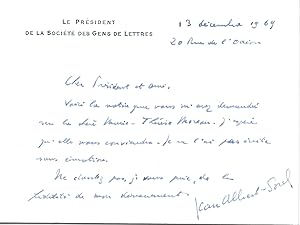 LE PRÉSIDENT
DE LA SOCIÉTÉ DES GENS DE LETTRES
13 décembre 1969
20 Rue de l'
Cher Président et ami,
Voici la notice que vous m'avez demandée
sur la Marie-Thérèse . J'espère
qu'elle vous conviendra. Je ne l'ai pas écrite
sans émotion.
Ne doutez pas, je vous prie, de la
fidélité de mon dévouement.
Jean Albert-Sorel